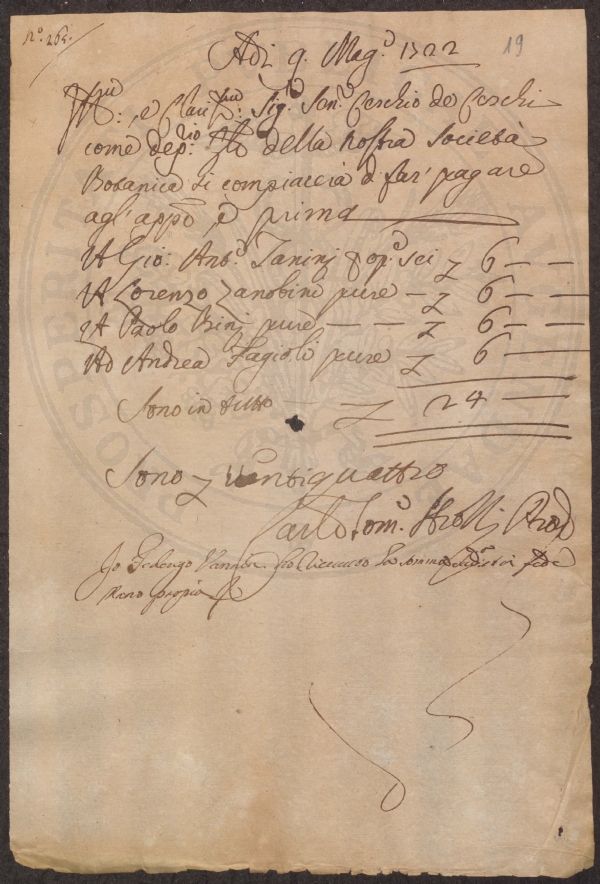 N.º 264.
19
Adi 9. Mag.º 1722
Ill.mo, e Clari.mo Sig.r Sen.r Cerchio de Cerchi
come dep.rio della nostra Società
Botanica si compiaccia d far' pagare
agl'app.o, e prima
A Gio: Ant.º Tanini op.e sei 6 — —
A Lorenzo Zanobini pure — 6 — —
A Paolo Bini pure — — 6 — —
Ad Andrea Fagioli pure 6 — —
Sono in tutto — 24 —
Sono ventiquattro
Carlo Tom.º Strozzi
Io ho ricevuto la somma sud.a in fede
mano propria